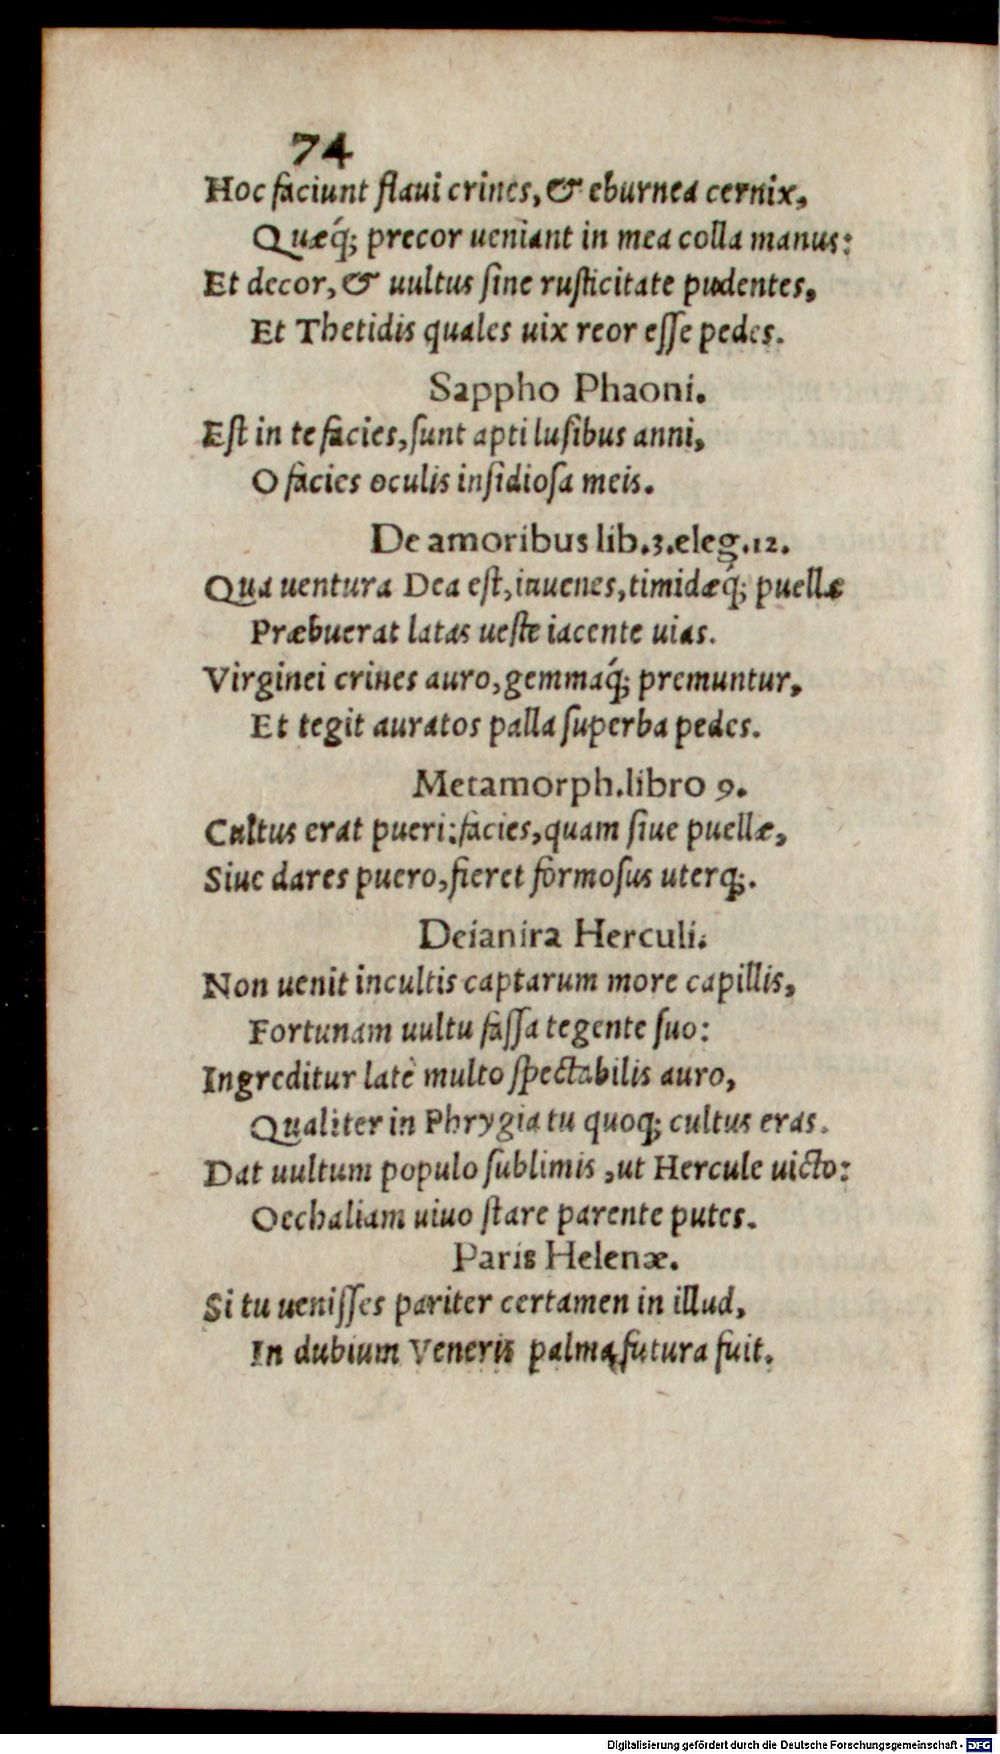 74
Hoc faciunt flaui crines, & eburnea ceruix,
Quæq́; precor ueniant in mea colla manus:
Et decor, & uultus sine rusticitate pudentes,
Et Thetidis quales uix reor esse pedes.
Sappho Phaoni.
Est in te facies, sunt apti lusibus anni,
O facies oculis insidiosa meis.
De amoribus lib.3.eleg.12.
Qua uentura Dea est, iuuenes, timidæq́; puellæ
Præbuerat latas ueste iacente uias.
Virginei crines auro, gemmaq́; premuntur,
Et tegit auratos palla superba pedes.
Metamorph.libro 9.
Cultus erat pueri: facies, quam siue puellæ,
Siue dares puero, fieret formosus uterq;.
Deianira Herculi.
Non uenit incultis captarum more capillis,
Fortunam uultu fassa tegente suo:
Ingreditur latè multo spectabilis auro,
Qualiter in Phrygia tu quoq; cultus eras.
Dat uultum populo sublimis, ut Hercule uicto:
Oechaliam uiuo stare parente putes.
Paris Helenæ.
Si tu uenisses pariter certamen in illud,
In dubium Veneris palma futura fuit.
Digitalisierung gefördert durch die Deutsche Forschungsgemeinschaft - DFG